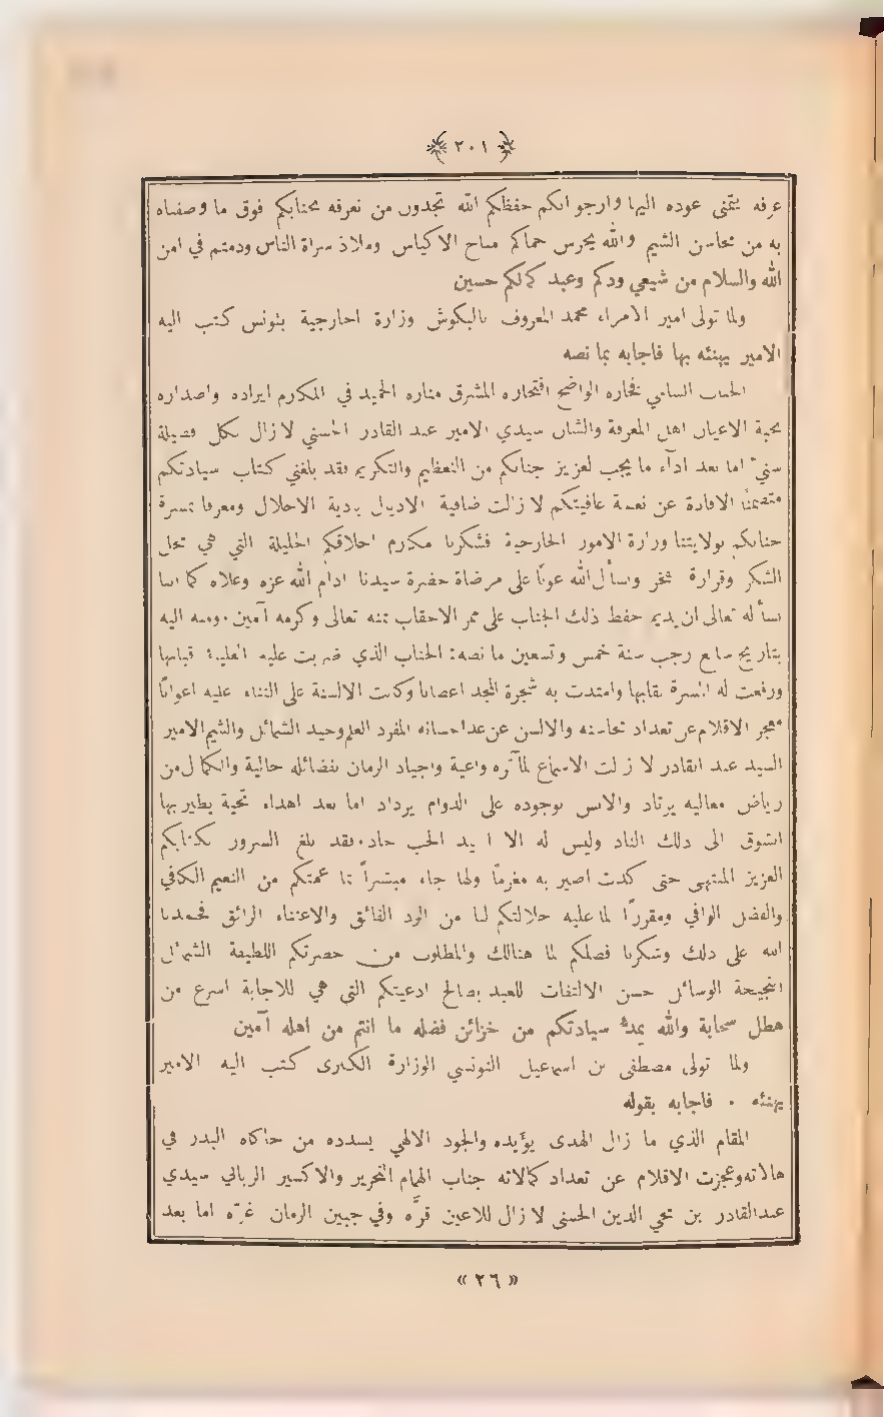 ٢٠١
عرفه يتمنى عوده اليها وارجو انكم حفظكم الله تجدون من تعرفه بجنابكم فوق ما وصفناه
به من محاسن الشيم والله يحرس حماكم مناح الاكياس وملاذ سراة الناس ودمتم في امن
الله والسلام من شيعي ودكم وعبد كمالكم حسين
ولما تولى امير الامراء محمد المعروف بالبكوش وزارة الخارجية بتونس كتب اليه
الامير يهنئه بها فاجابه بما نصه
الجناب السامي فخاره الواضح افتخاره المشرق مناره الحميد في المكارم ايراده واصداره
نخبة الاعيان اهل المعرفة والشان سيدي الامير عبد القادر الحسني لا زال بكل فضيلة
سني اما بعد ادآء ما يجب لعزيز جنابكم من التعظيم والتكريم فقد بلغني كتاب سيادتكم
متضمنًا الافادة عن نعمة عافيتكم لا زالت ضافية الاذيال بادية الاجلال ومعرفا بمسرة
جنابكم بولايتنا وزارة الامور الخارجية فشكرنا مكارم اخلاقكم الجليلة التي هي محل
الشكر وقرارة فخر واسأل الله عونًا على مرضاة حضرة سيدنا ادام الله عزه وعلاه كما اننا
نسأله تعالى ان يديم حفظ ذلك الجناب على ممر الاحقاب بمنه تعالى وكرمه آمين . ومنه اليه
بتاريخ سابع رجب سنة خمس وتسعين ما نصه : الجناب الذي ضربت عليه العلياء قبابها
ورفعت له المسرة نقابها وامتدت به شجرة المجد اغصانا وكانت الالسنة على الثناء عليه اعوانًا
الاقلام عن تعداد محاسنه والالسن عن عد احسانه المفرد العلم وحيد الشمائل والشيم الامير
السيد عبد القادر لا زالت الاسماع لمآثره واعية واجياد الزمان بفضائله حالية والكمال من
رياض معاليه يرتاد والانس بوجوده على الدوام يزداد اما بعد اهداء تحية يطير بها
الشوق الى ذلك الناد وليس له الا الحب حاد . فقد بلغ السرور بكتابكم
العزيز المنتهى حتى كدت اصير به مغرمًا ولها جاء مبشراً بنا عمتكم من النعيم الكافي
والفضل الوافي ومقررًا لما عليه جلالتكم لنا من الود الفائق والاعتناء الرائق فحمدنا
الله على ذلك وشكرنا فضلكم لما هنالك والمطلوب من حضرتكم اللطيفة الشمائل
النجيحة الوسائل حسن الالتفات للعبد بصالح ادعيتكم التي هي للاجابة اسرع من
هطل سحابة والله يمدّ سيادتكم من خزائن فضله ما انتم من اهله آمين
ولما تولى مصطفى بن اسماعيل التونسي الوزارة الكبرى كتب اليه الامير
يهنئه . فاجابه بقوله
المقام الذي ما زال الهدى يؤيده والجود الالهي يسدده من حاكاه البدر في
هالاته وعجزت الاقلام عن تعداد كمالاته جناب الهمام النحرير والاكسير الرباني سيدي
عبد القادر بن محي الدين الحسني لا زال للاعين قرَّه وفي جبين الزمان غرّه اما بعد
« ٢٦ »